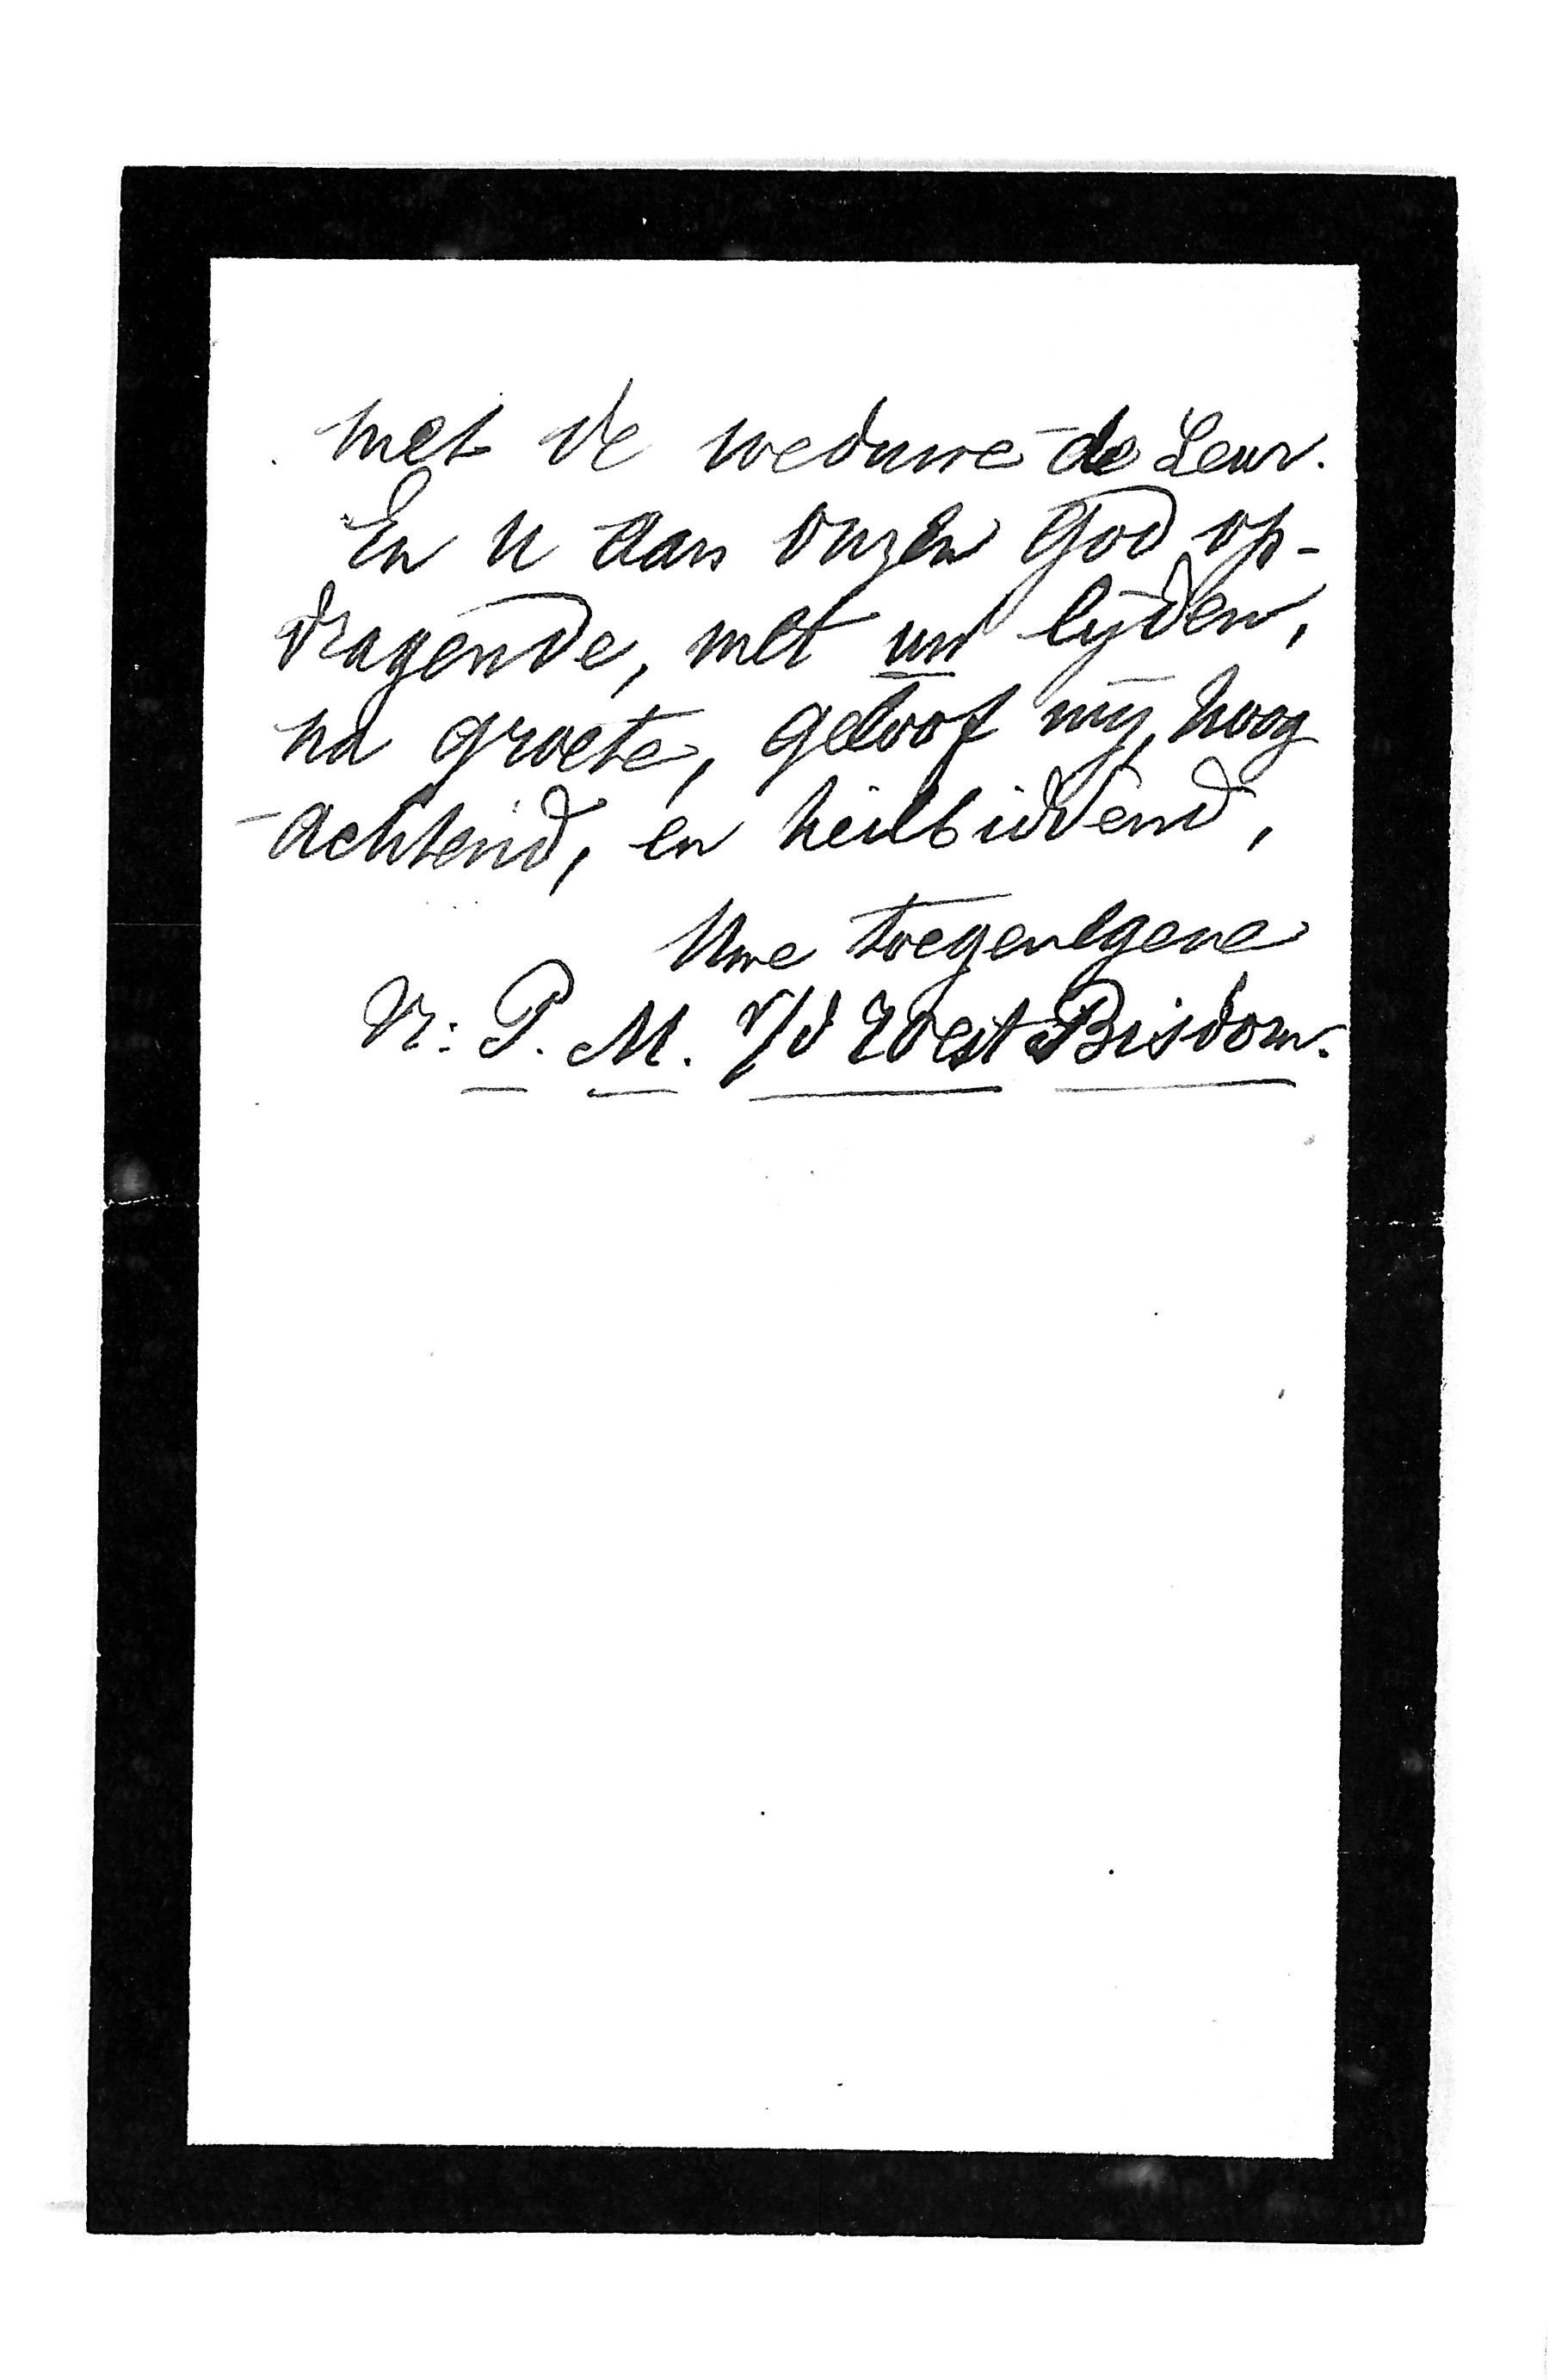 met de weduwe de Leur.
En u aan onzen God op-
dragende, met uw lijden,
na groete, geloof mij, hoog
-achtend, en heilbiddend,
Uwe toegenegene
N: P. M. v/d Woest Bisdom.